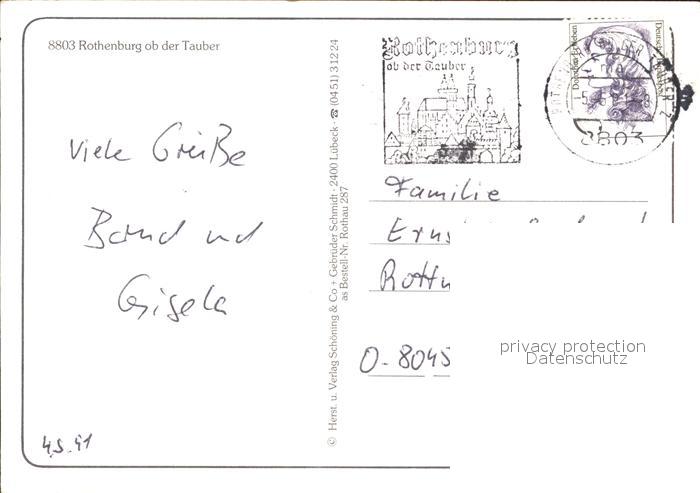 8803 Rothenburg ob der Tauber
Viele Grüße
Bernd und
Gisela
4.5.91
© Herst. u. Verlag Schöning & Co + Gebrüder Schmidt · 2400 Lübeck · ☎ (0451) 3 12 24
as Bestell-Nr. Rothau 287
Rothenburg
ob der Tauber
8803
Familie
Erns
Roth
O-8045
privacy protection
Datenschutz